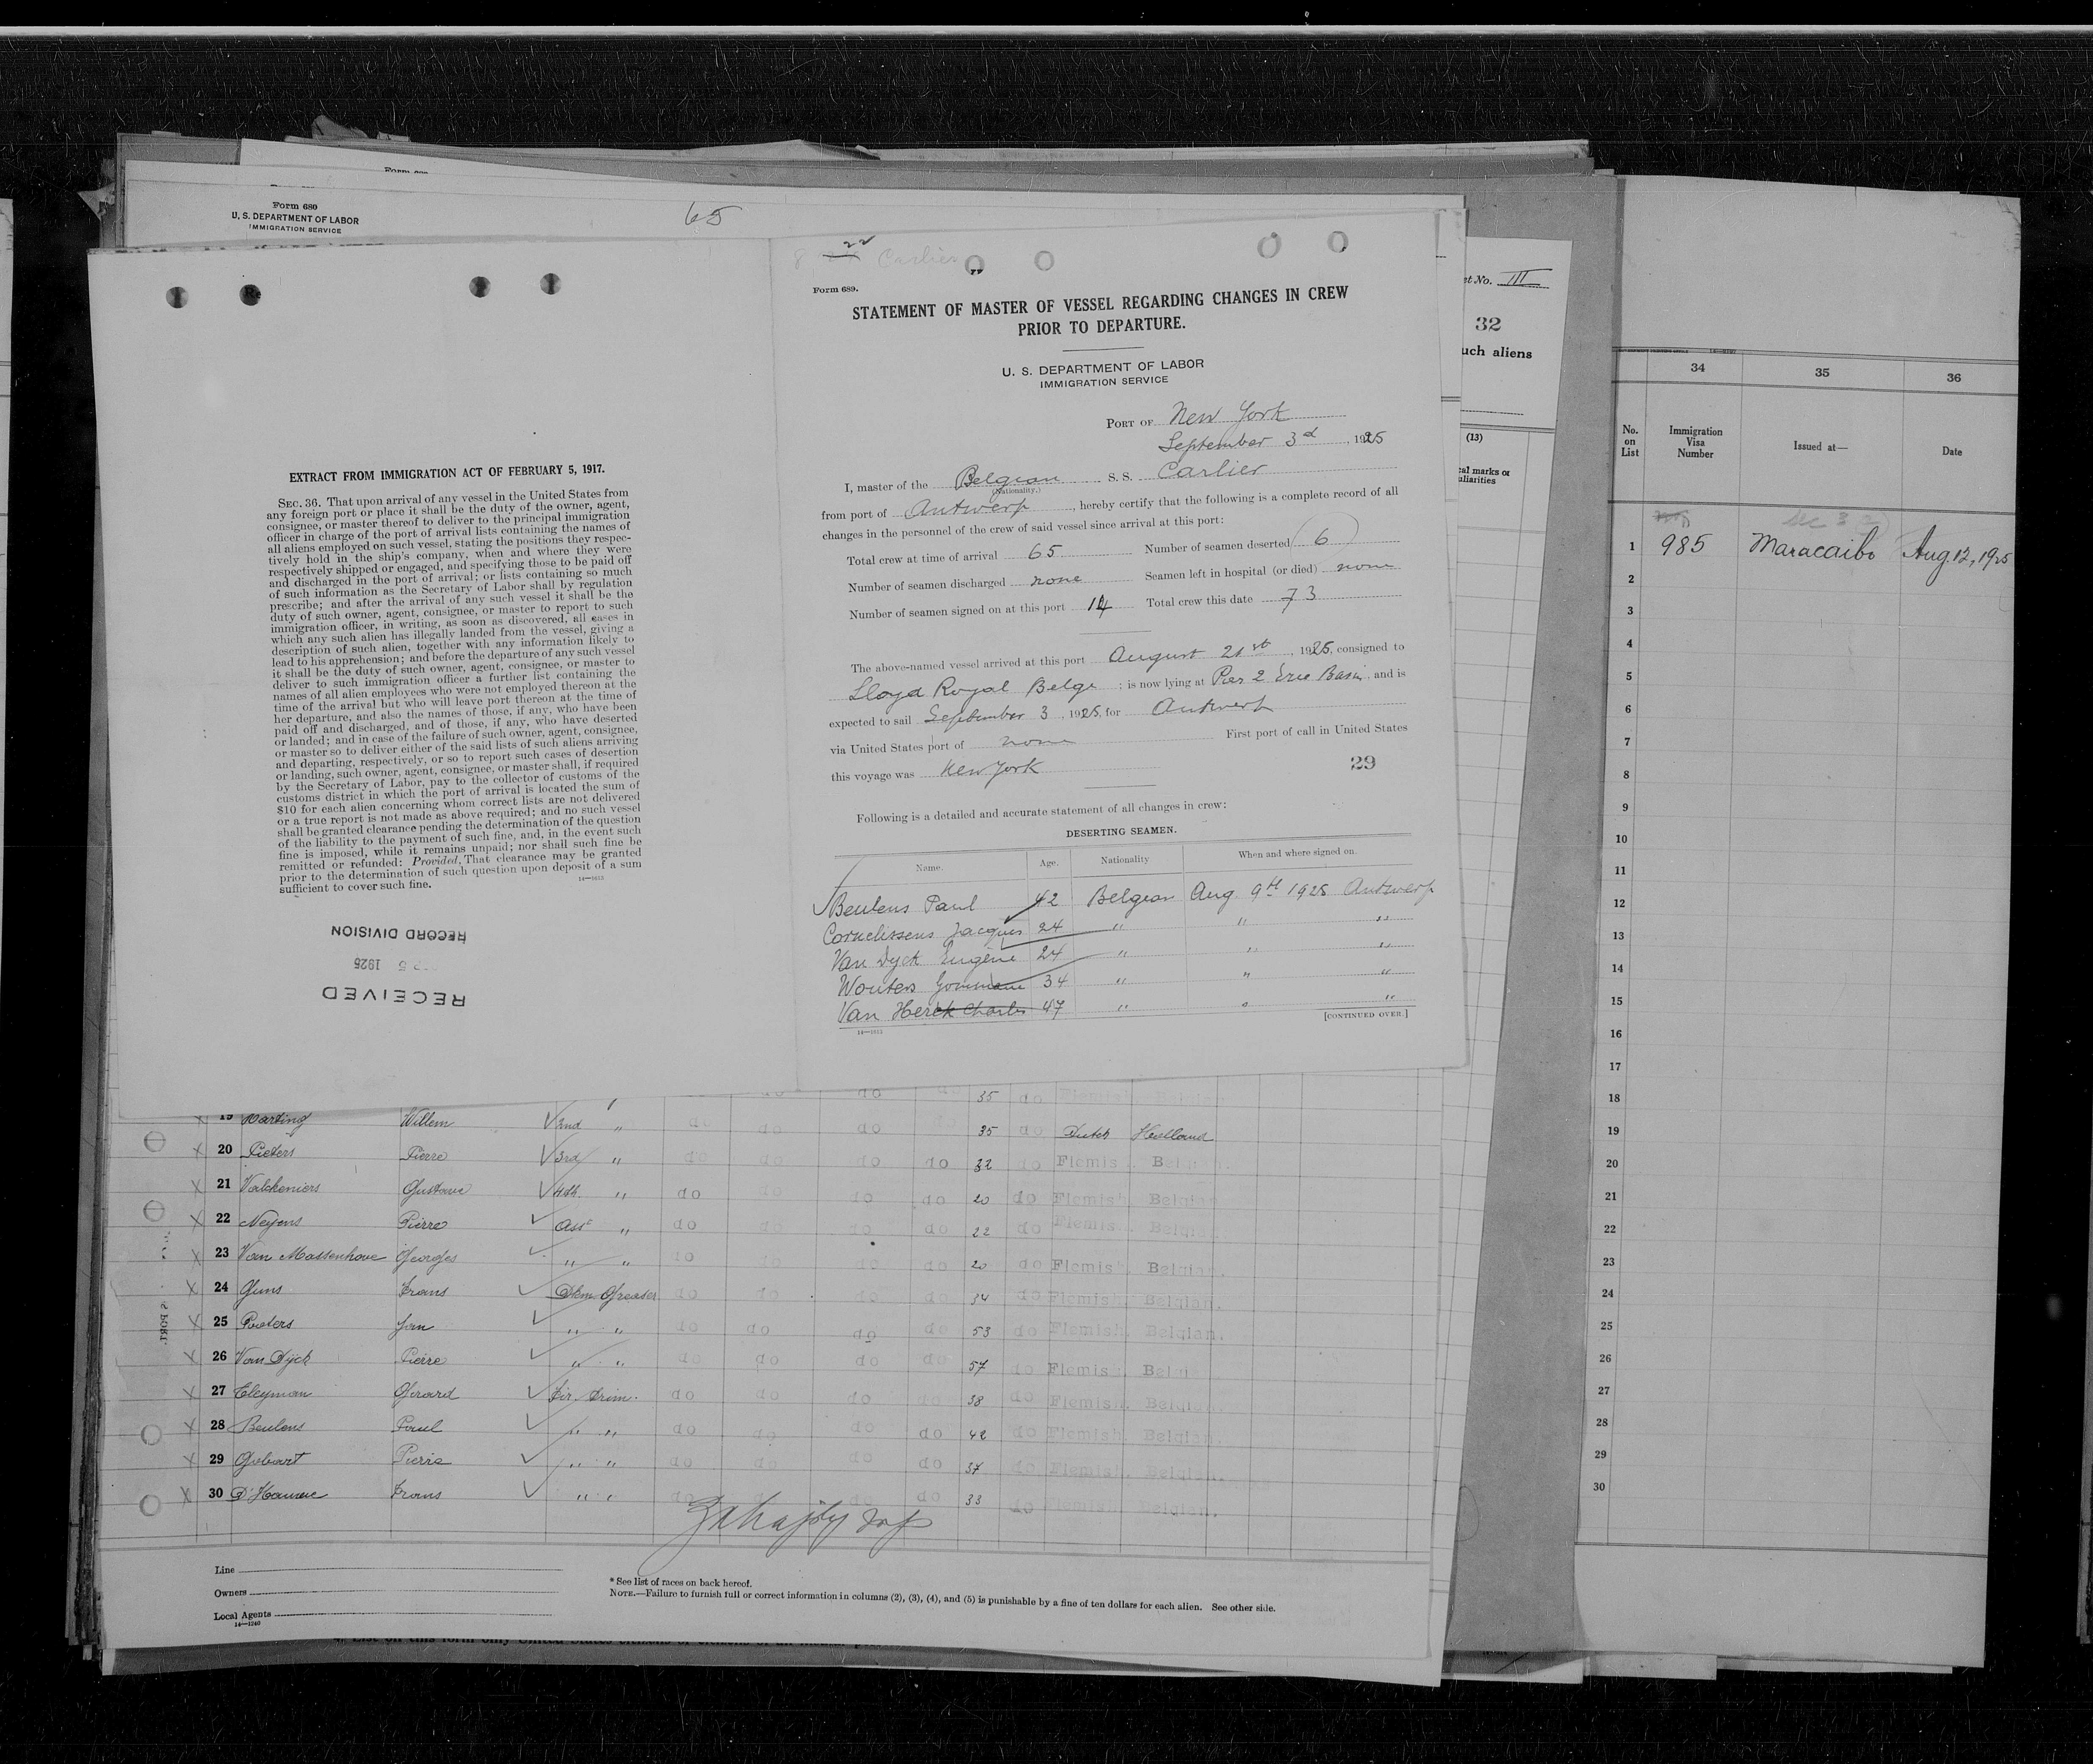 Form 680
U. S. DEPARTMENT OF LABOR
IMMIGRATION SERVICE
65
EXTRACT FROM IMMIGRATION ACT OF FEBRUARY 5, 1917.
SEC. 36. That upon arrival of any vessel in the United States from
any foreign port or place it shall be the duty of the owner, agent,
consignee, or master thereof to deliver to the principal immigration
officer in charge of the port of arrival lists containing the names of
all aliens employed on such vessel, stating the positions they respec-
tively hold in the ship's company, when and where they were
respectively shipped or engaged, and specifying those to be paid off
and discharged in the port of arrival; or lists containing so much
of such information as the Secretary of Labor shall by regulation
prescribe; and after the arrival of any such vessel it shall be the
duty of such owner, agent, consignee, or master to report to such
immigration officer, in writing, as soon as discovered, all cases in
which any such alien has illegally landed from the vessel, giving a
description of such alien, together with any information likely to
lead to his apprehension; and before the departure of any such vessel
it shall be the duty of such owner, agent, consignee, or master to
deliver to such immigration officer a further list containing the
names of all alien employees who were not employed thereon at the
time of the arrival but who will leave port thereon at the time of
her departure, and also the names of those, if any, who have been
paid off and discharged, and of those, if any, who have deserted
or landed; and in case of the failure of such owner, agent, consignee,
or master so to deliver either of the said lists of such aliens arriving
and departing, respectively, or so to report such cases of desertion
or landing, such owner, agent, consignee, or master shall, if required
by the Secretary of Labor, pay to the collector of customs of the
customs district in which the port of arrival is located the sum of
$10 for each alien concerning whom correct lists are not delivered
or a true report is not made as above required; and no such vessel
shall be granted clearance pending the determination of the question
of the liability to the payment of such fine, and, in the event such
fine is imposed, while it remains unpaid; nor shall such fine be
remitted or refunded: Provided, That clearance may be granted
prior to the determination of such question upon deposit of a sum
sufficient to cover such fine.
RECEIVED
1925
RECORD DIVISION
22
Carlier
Form 689.
STATEMENT OF MASTER OF VESSEL REGARDING CHANGES IN CREW
PRIOR TO DEPARTURE.
U. S. DEPARTMENT OF LABOR
IMMIGRATION SERVICE
PORT OF New York
September 3d, 1925
I, master of the Belgian S. S. Carlier
(Nationality.)
from port of Antwerp, hereby certify that the following is a complete record of all
changes in the personnel of the crew of said vessel since arrival at this port:
Total crew at time of arrival 65 Number of seamen deserted 6
Number of seamen discharged none Seamen left in hospital (or died) none
Number of seamen signed on at this port 14 Total crew this date 73
The above-named vessel arrived at this port August 21st, 1925, consigned to
Lloyd Royal Belge; is now lying at Pier 2 Erie Basin, and is
expected to sail September 3, 1925, for Antwerp
via United States port of none First port of call in United States
this voyage was New York
29
Following is a detailed and accurate statement of all changes in crew:
DESERTING SEAMEN.
Name. Age. Nationality When and where signed on.
Beulens Paul 42 Belgian Aug. 9th 1925 Antwerp
Cornelissens Jacques 24 " " "
Van Dyck Eugène 24 " " "
Wouters 34 " " "
Van Herck Charles 47 " " "
[CONTINUED OVER.]
35 do Flemish Belgian
19 Harting Willem 2nd " do do do 35 do Dutch Holland
20 Pieters Pierre 3rd " do do do do 32 do Flemish Belgian.
21 Valckeniers Gustave 4th " do do do do 20 do Flemish Belgian
22 Neyens Pierre Asst " do do do do 22 do Flemish Belgian
23 Van Massenhove Georges " " do do do do 20 do Flemish Belgian.
24 Guns Frans Dkm. Greaser do do do do 34 do Flemish Belgian.
25 Peeters Jan " " do do do do 53 do Flemish. Belgian.
26 Van Dyck Pierre " " do do do do 57 do Flemish Belgi
27 Cleyman Gerard Fir. Trim. do do do do 38 do Flemish. Belgian.
28 Beulens Paul " " do do do do 42 do Flemish. Belgian.
29 Gobart Pierre " " do do do do 37 do Flemish. Belgian.
30 Frans " " do do do do 33 do Flemish. Belgian.
Line
Owners
Local Agents
14—1240
* See list of races on back hereof.
NOTE.—Failure to furnish full or correct information in columns (2), (3), (4), and (5) is punishable by a fine of ten dollars for each alien. See other side.
et No. III
32
uch aliens
(13)
cal marks or
uliarities
34 35 36
No. on List Immigration Visa Number Issued at— Date
1 985 Maracaibo Aug. 12, 1925
2
3
4
5
6
7
8
9
10
11
12
13
14
15
16
17
18
19
20
21
22
23
24
25
26
27
28
29
30